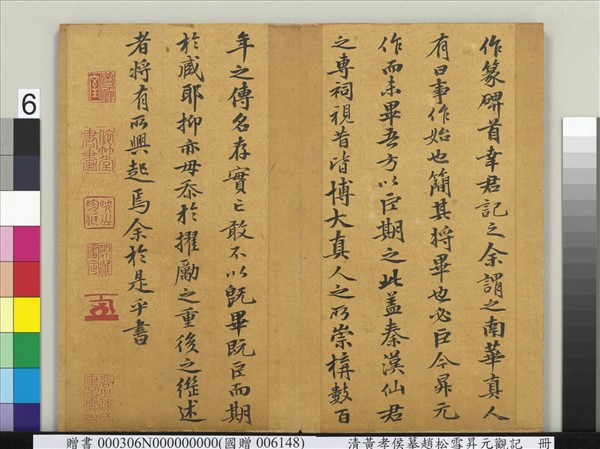 作篆碑首幸君記之余謂之南華真人
有曰事作始也簡其將畢也必巨今昇元
作而未畢吾方以巨期之此蓋秦漢仙君
之專祠視昔皆博大真人之所崇構數百
年之傳名存實亡敢不以既畢既巨而期
於咸耶抑亦毋忝於擢勵之重後之繼述
者將有所興起焉余於是乎書
6
贈書 000306N000000000(國贈 006148)
清黃孝侯摹趙松雪昇元觀記 冊